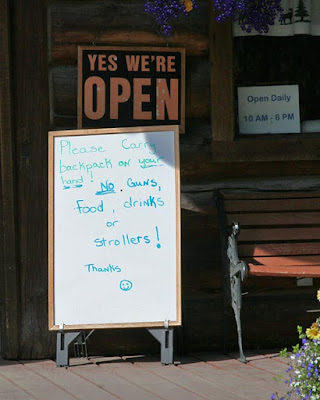 YES WE'RE
OPEN
Open Daily
10 AM - 6 PM
Please Carry
backpack on your
hand!
NO Guns,
food, drinks
or
strollers!
Thanks